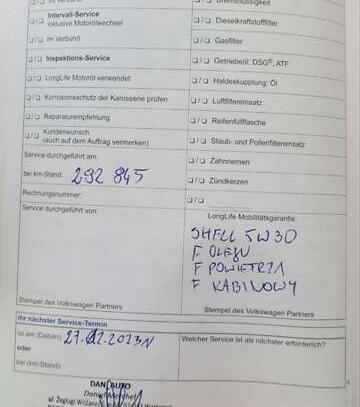 Intervall-Service
inklusive Motorölwechsel
❏/❏ Dieselkraftstofffilter
❏/❏ im Verbund
❏/❏ Gasfilter
❏/❏ Inspektions-Service
❏/❏ Getriebeöl: DSG®, ATF
❏/❏ LongLife Motoröl verwendet
❏/❏ Haldexkupplung: Öl
❏/❏ Korrosionsschutz der Karosserie prüfen
❏/❏ Luftfiltereinsatz
❏/❏ Reparaturempfehlung
❏/❏ Reifenfüllflasche
❏/❏ Kundenwunsch
(auch auf dem Auftrag vermerken)
❏/❏ Staub- und Pollenfiltereinsatz
Service durchgeführt am:
❏/❏ Zahnriemen
bei km-Stand: 292 845
❏/❏ Zündkerzen
Rechnungsnummer:
❏/❏
Service durchgeführt von:
LongLife Mobilitätsgarantie:
SHELL 5W30
F OLEJU
F POWIETRZA
F KABINOWY
Stempel des Volkswagen Partners
Stempel des Volkswagen Partners
Ihr nächster Service-Termin
ist am (Datum):
Welcher Service ist als nächster erforderlich?
oder
bei (km-Stand):
DANAUTO